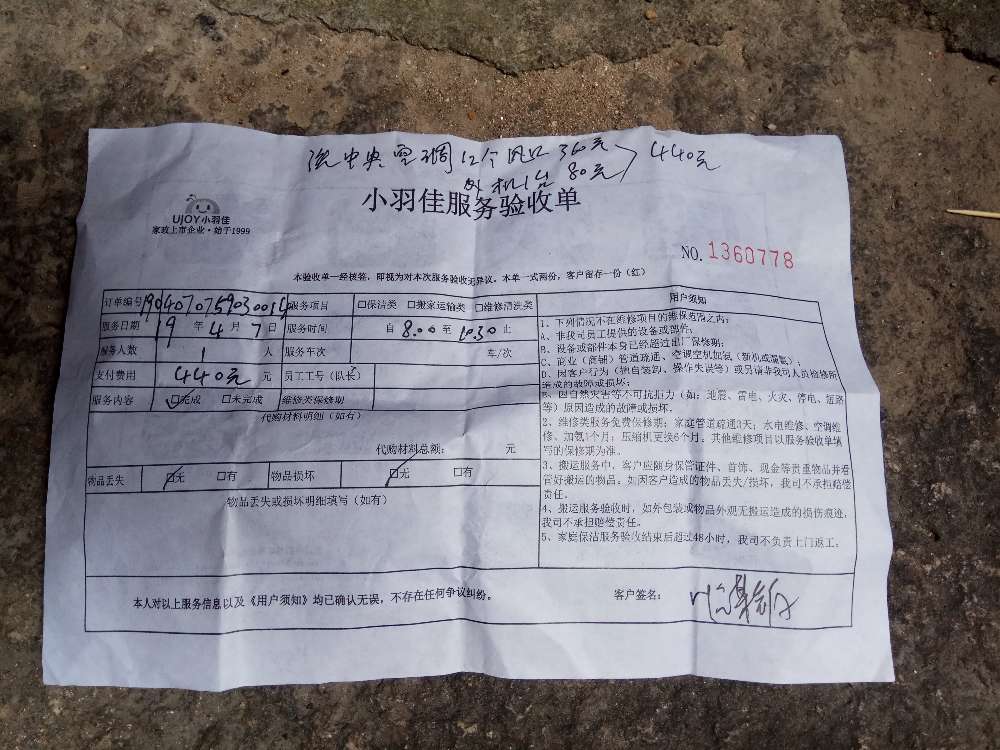 洗中央空调12个风口 360元
外机1台 80元 440元
小羽佳服务验收单
UJOY小羽佳
家政上市企业·始于1999
NO. 1360778
本验收单一经核签，即视为对本次服务验收无异议。本单一式两份，客户留存一份（红）
订单编号 服务项目 □保洁类 □搬家运输类 □维修清洗类
服务日期 19 年 4 月 7 日 服务时间 自 8:00 至 10:30 止
服务人数 1 人 服务车次 车/次
支付费用 440元 元 员工工号（队长）
服务内容 □完成 □未完成 维修类保修期
代购材料明细（如有）
代购材料总额： 元
物品丢失 □无 □有 物品损坏 □无 □有
物品丢失或损坏明细填写（如有）
用户须知
1、下列情况不在维修项目的维保范围之内：
A、非我司员工提供的设备或部件；
B、设备或部件本身已经超过出厂保修期；
C、商业（商铺）管道疏通、空调空机加氨（新机或漏氨）；
D、因客户行为（独自装卸、操作失误等）或另请非我司人员检修所
造成的故障或损坏；
E、因自然灾害等不可抗拒力（如：地震、雷电、火灾、停电、短路
等）原因造成的故障或损坏。
2、维修类服务免费保修期：家庭管道疏通3天；水电维修、空调维
修、加氨1个月；压缩机更换6个月；其他维修项目以服务验收单填
写的保修期为准。
3、搬运服务中，客户应随身保管证件、首饰、现金等贵重物品并看
管好搬运的物品。如因客户造成的物品丢失/损坏，我司不承担赔偿
责任。
4、搬运服务验收时，如外包装或物品外观无搬运造成的损伤痕迹，
我司不承担赔偿责任。
5、家庭保洁服务验收结束后超过48小时，我司不负责上门返工。
本人对以上服务信息以及《用户须知》均已确认无误，不存在任何争议纠纷。 客户签名：